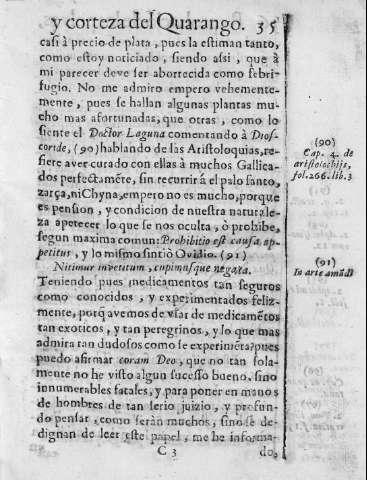 y corteza del Quarango. 35
casi à precio de plata, pues la estiman tanto,
como estoy noticiado, siendo assi, que à
mi parecer deve ser aborrecida como febri-
fugio. No me admiro empero vehemente-
mente, pues se hallan algunas plantas mu-
cho mas afortunadas, que otras, como lo
siente el Doctor Laguna comentando à Dios-
coride, (90) hablando de las Aristoloquias, re-
fiere aver curado con ellas à muchos Gallica-
dos perfectamẽte, sin recurrir á el palo santo,
zarça, ni Chyna, empero no es mucho, porque
es pension, y condicion de nuestra naturale-
za apetecer lo que se nos oculta, ò prohibe,
segun maxima comun: Prohibitio est causa ap-
petitus, y lo mismo sintiò Ovidio. (91)
Nitimur in vetitum, cupimusque negata.
Teniendo pues medicamentos tan seguros
como conocidos, y experimentados feliz-
mente, porq avemos de vsar de medicamẽtos
tan exoticos, y tan peregrinos, y lo que mas
admira tan dudosos como se experimẽta? pues
puedo afirmar coram Deo, que no tan sola-
mente no he visto algun sucesso bueno, sino
innumerables fatales, y para poner en manos
de hombres de tan serio juizio, y profun-
do pensar, como serán muchos, sino se de-
dignan de leer este papel, me he informa-
C 3 do,
(90)
Cap. 4. de
aristolochijs,
fol. 266. lib. 3
(91)
In arte amãdi